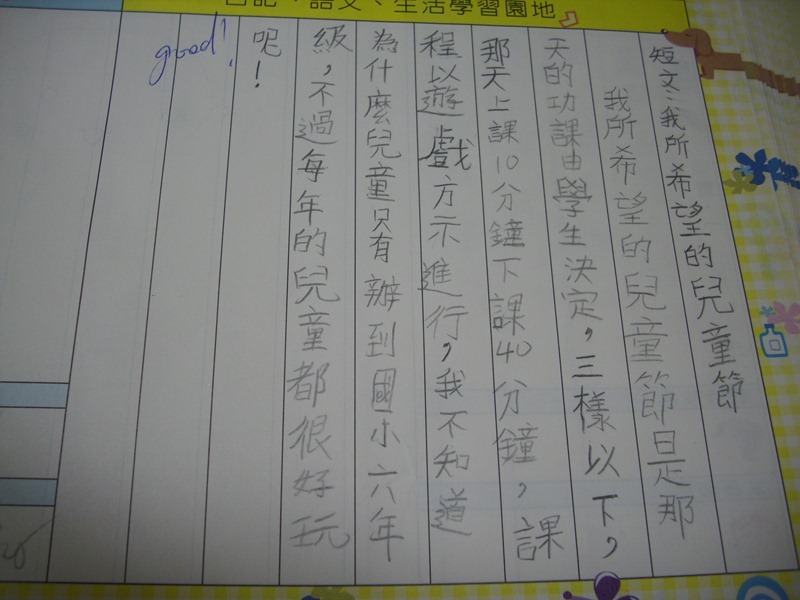 日記、語文、生活學習園地
短文:我所希望的兒童節
我所希望的兒童節是那
天的功課由學生決定,三樣以下,
那天上課10分鐘下課40分鐘,課
程以遊戲方示進行,我不知道
為什麼兒童只有辦到國小六年
級,不過每年的兒童都很好玩
呢!
good!